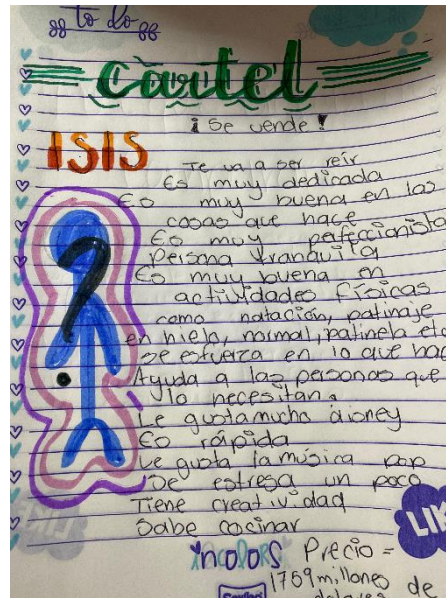 to do
cartel
¡Se vende!
ISIS
Te va a ser reír
Es muy dedicada
Es muy buena en las
cosas que hace
Es muy perfeccionista
Persona tranquila
Es muy buena en
actividades físicas
como natación, patinaje
en hielo, normal, patineta etc
se esfuerza en lo que hac
Ayuda a las personas que
lo necesitan.
Le gusta mucho disney
Es rápida
Le gusta la música pop
Se estresa un poco
Tiene creatividad
Sabe cocinar
LIK
incolors Precio =
1759 millones de